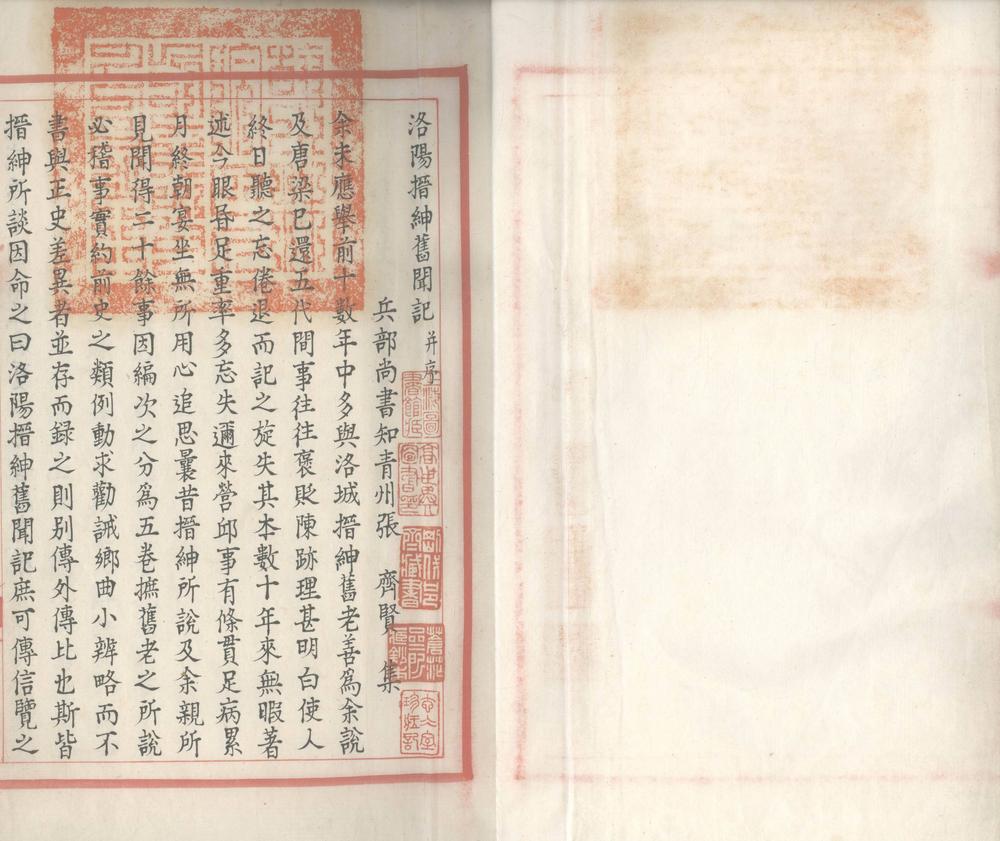 洛陽搢紳舊聞記并序
兵部尚書知青州張齊賢集
余未應舉前十數年中多與洛城搢紳舊老善爲余說
及唐梁已還五代間事往往褒貶陳跡理甚明白使人
終日聽之忘倦退而記之旋失其本數十年來無暇著
述今眼昏足重率多忘失邇來營邱事有條貫足病累
月終朝宴坐無所用心追思曩昔搢紳所說及余親所
見聞得二十餘事因編次之分爲五卷摭舊老之所說
必稽事實約前史之類例動求勸誡鄉曲小辨略而不
書與正史差異者並存而録之則別傳外傳比也斯皆
搢紳所談因命之曰洛陽搢紳舊聞記庶可傳信覽之